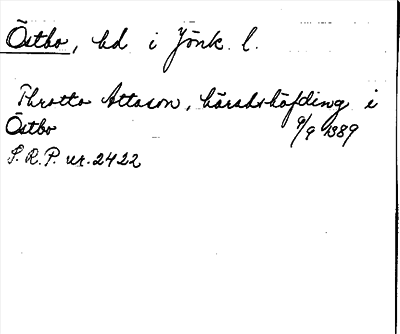 Östbo, hd i Jönk. l.
Throtto Attason, häradshöfding i
Östbo 9/9 1389
S.R.P. nr. 2422